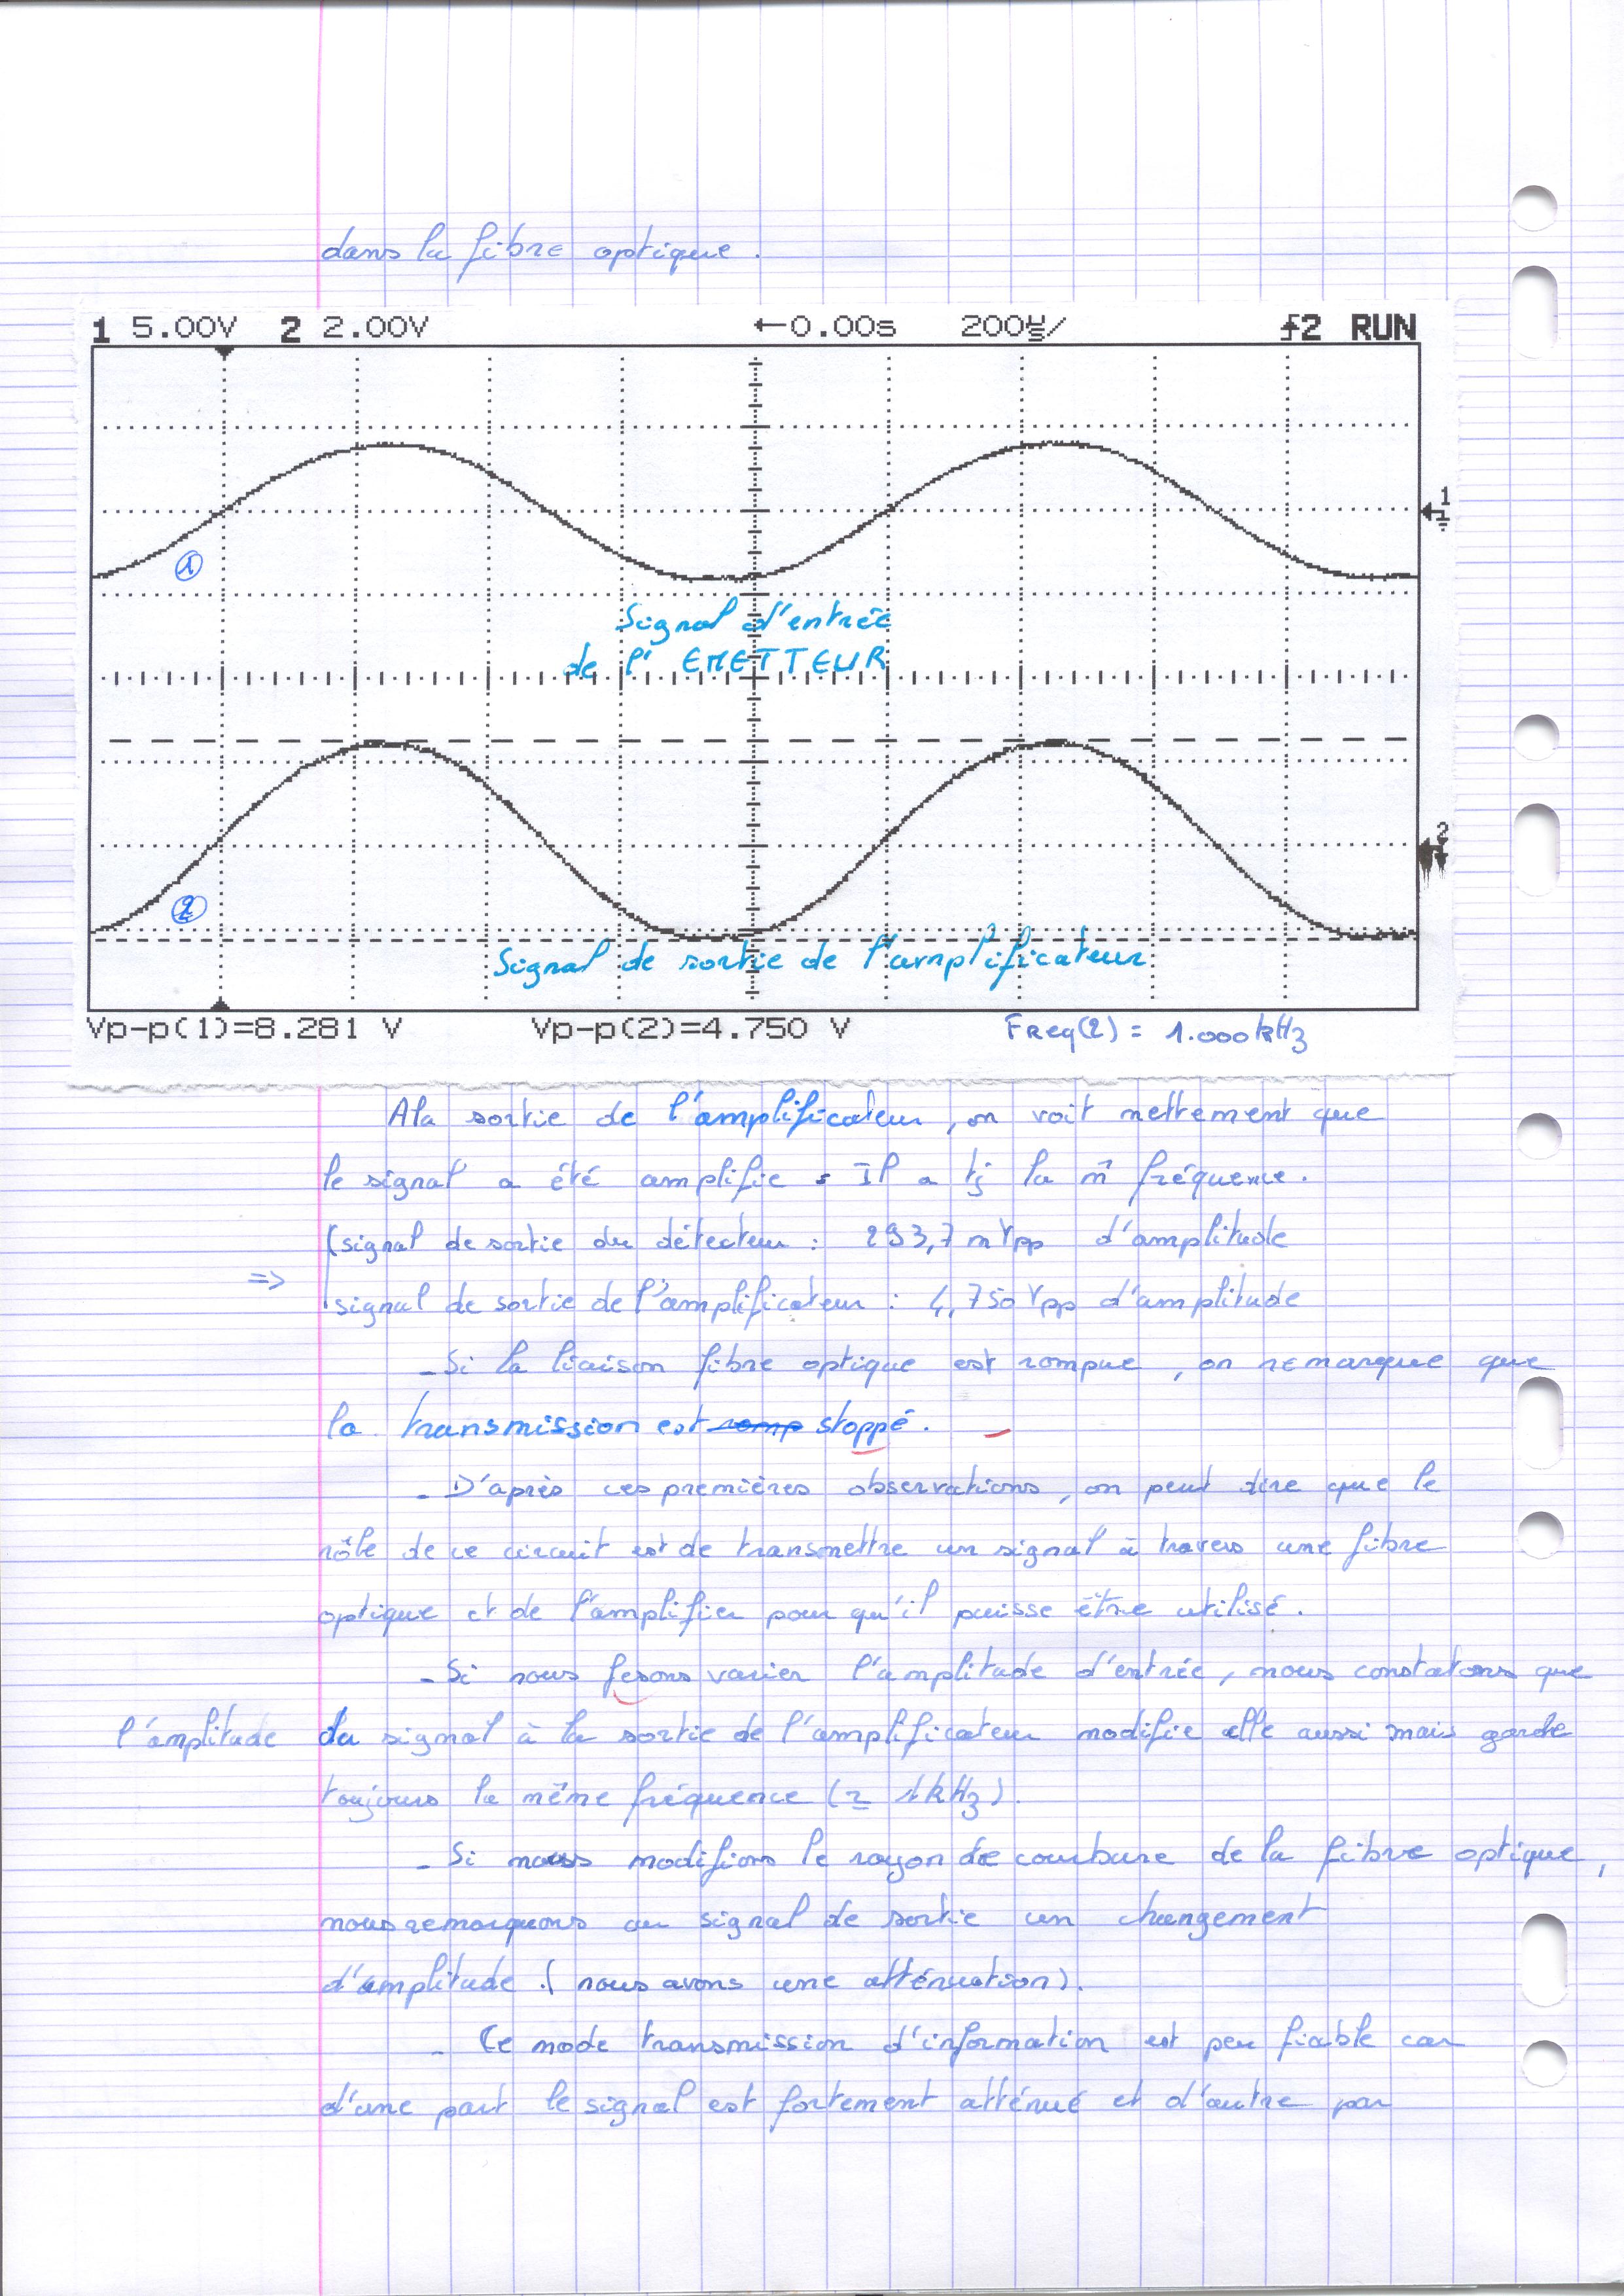 dans la fibre optique.
1 5.00V 2 2.00V ←0.00s 200µs/ ƒ2 RUN
1
①
Signal d'entrée
de l'EMETTEUR
2
②
Signal de sortie de l'amplificateur
Vp-p(1)=8.281 V Vp-p(2)=4.750 V Freq(2) = 1.000kHz
A la sortie de l'amplificateur, on voit nettement que
le signal a été amplifie : Il a tj la m̂ fréquence.
(signal de sortie du détecteur : 293,7 mVpp d'amplitude
=>
signal de sortie de l'amplificateur : 4,750 Vpp d'amplitude
- Si la liaison fibre optique est rompue, on remarque que
la transmission est romp stoppé.
- D'après ces premières observations, on peut dire que le
rôle de ce circuit est de transmettre un signal à travers une fibre
optique et de l'amplifier pour qu'il puisse être utilisé.
- Si nous fesons varier l'amplitude d'entrée, nous constatons que
l'amplitude du signal à la sortie de l'amplificateur modifie elle aussi mais garde
toujours la même fréquence (≃ 1kHz).
- Si nous modifions le rayon de courbure de la fibre optique,
nous remarquons au signal de sortie un changement
d'amplitude. (nous avons une atténuation).
- Ce mode transmission d'information est peu fiable car
d'une part le signal est fortement atténué et d'autre par